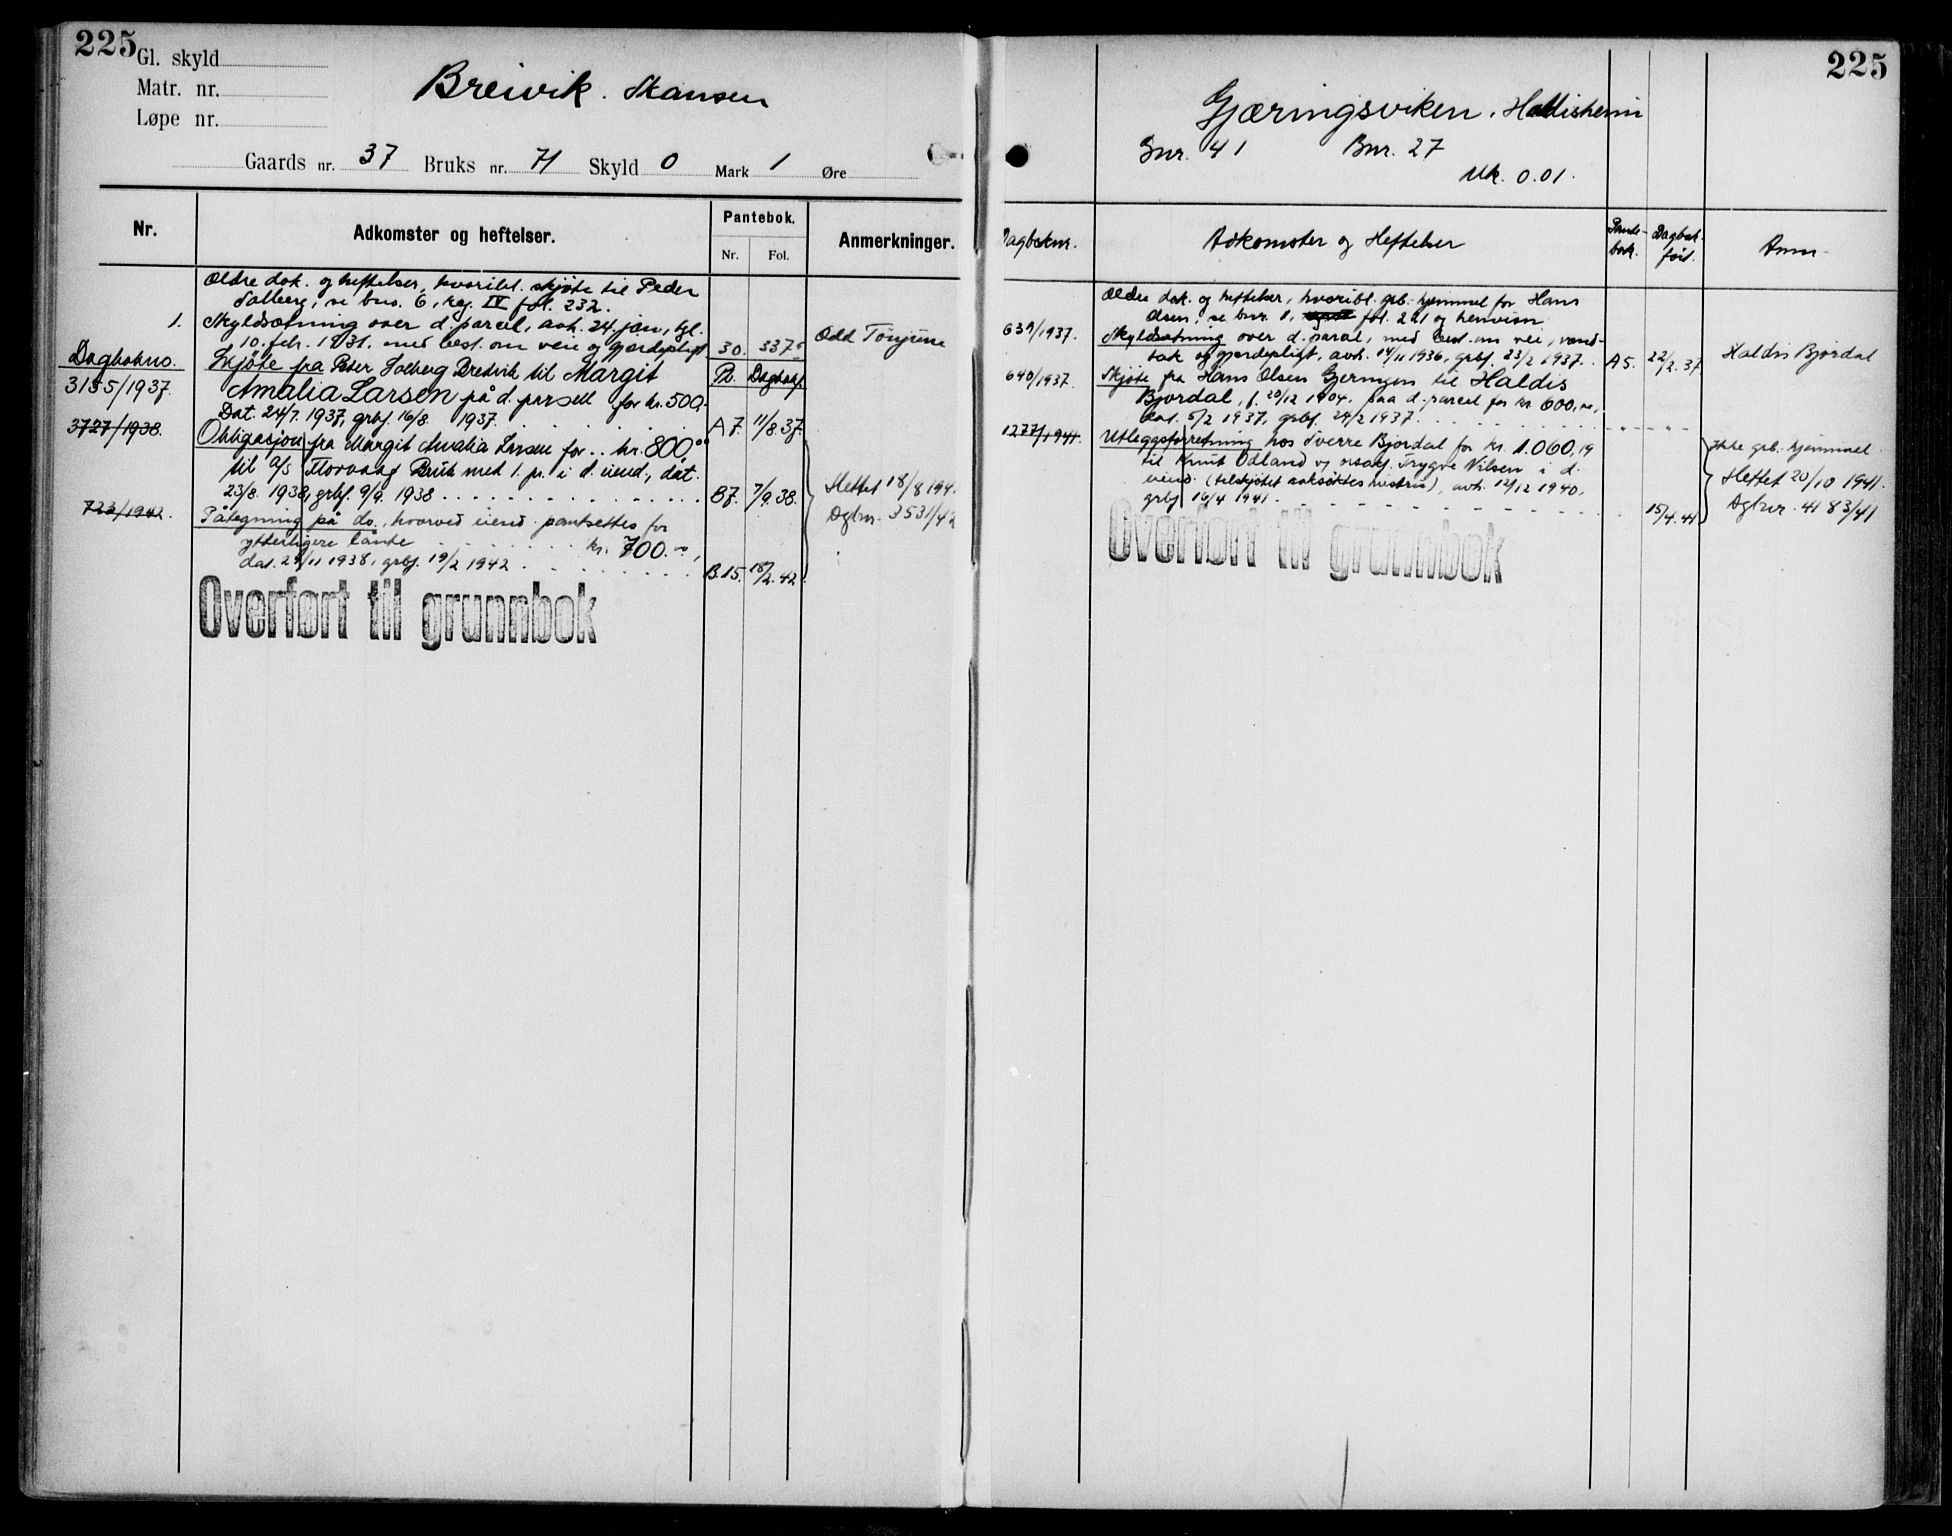 225
Gl. skyld
Matr. nr.
Løpe nr.
Breivik. Skansen
Gaards nr. 37 Bruks nr. 71 Skyld 0 Mark 1 Øre
Nr.
Adkomster og heftelser.
Pantebok.
Nr. Fol.
Anmerkninger.
Ældre dok. og heftelser, hvoribl. skjøte til Peder
Solberg, se bno. 6, reg. IV fol. 232.
1. Skyldsætning over d. parcel, avh. 24. jan., tgl.
10. febr. 1931, med best. om veie og gjerdepligt 30. 337
Odd Tønjum
Dagbokno.
3155/1937.
Skjøte fra Peder Solberg Breivik til Margit
Pb. Dagbokf.
Amalia Larsen på d. parsell for kr. 500.-
Dat. 24/7. 1937, grbf. 16/8 1937. A7. 11/8.37.
3727/1938.
Obligasjon fra Margit Amalia Larsen for .. kr. 800,00
til A/S Florvaag Bruk med 1. pr. i d. eiend., dat.
23/8. 1938, grbf. 9/9. 1938 B7. 7/9.38.
Slettet 18/8 194
Dgbnr. 3531/42
723/1942.
Påtegning på do., hvorved eiend. pantsettes for
ytterligere lånte kr. 700.00,
dat. 29/11 1938, grbf. 19/2 1942 B.15. 18/2.42.
Overført til grunnbok
225
Gjæringsviken. Haldisheim
Gnr. 41 Bnr. 27
Mk. 0.01.
Dagboknr.
Adkomster og Heftelser
Pante-
bok.
Dagbok-
ført.
Anm.
Ældre dok. og heftelser, hvoribl. grb. hjemmel for Hans
Olsen, se bnr. 1, fol. 221 og henvisn.
639/1937.
Skyldsætning over d. parcel, med best. om vei, vand-
tak og gjerdepligt, avh. 14/11 1936, grbf. 23/2 1937. A5. 22/2.37.
Haldis Bjordal
640/1937.
Skjøte fra Hans Olsen Gjeringen til Haldis
Bjordal, f. 20/12 1904, paa d. parcel for kr 600,00,
dat. 5/2 1937, grbf. 24/2 1937.
1277/1941.
Utleggsforretning hos Sverre Bjordal for kr. 1.060,19
til Knut Odland og orsakf. Trygve Nilsen i d.
eiend. (tilskjøtet saksøktes hustru), avh. 12/12 1940,
grbf. 16/4 1941. 15/4.41
Ikke grb. hjemmel.
Slettet 20/10 1941.
Dgbnr. 4183/41
Overført til grunnbok